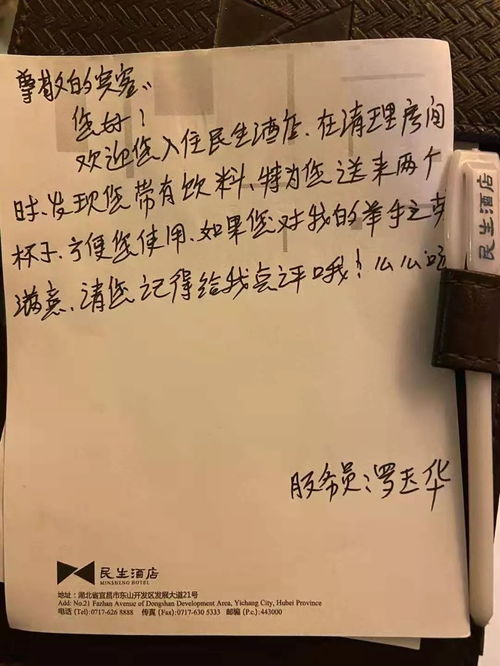 尊敬的宾客:
您好!
欢迎您入住民生酒店.在清理房间
时.发现您带有饮料.特为您送来两个
杯子.方便您使用.如果您对我的举手之劳
满意.请您记得给我点评哦!么么哒
服务员:罗玉华
民生酒店
MINSHENG HOTEL
地址:湖北省宜昌市东山开发区发展大道21号
Add: No.21 Fazhan Avenue of Dongshan Development Area, Yichang City, Hubei Province
电话 (Tel) :0717-626 8888 传真 (Fax) :0717-630 5333 邮编 (P.c.) :443000
民生酒店